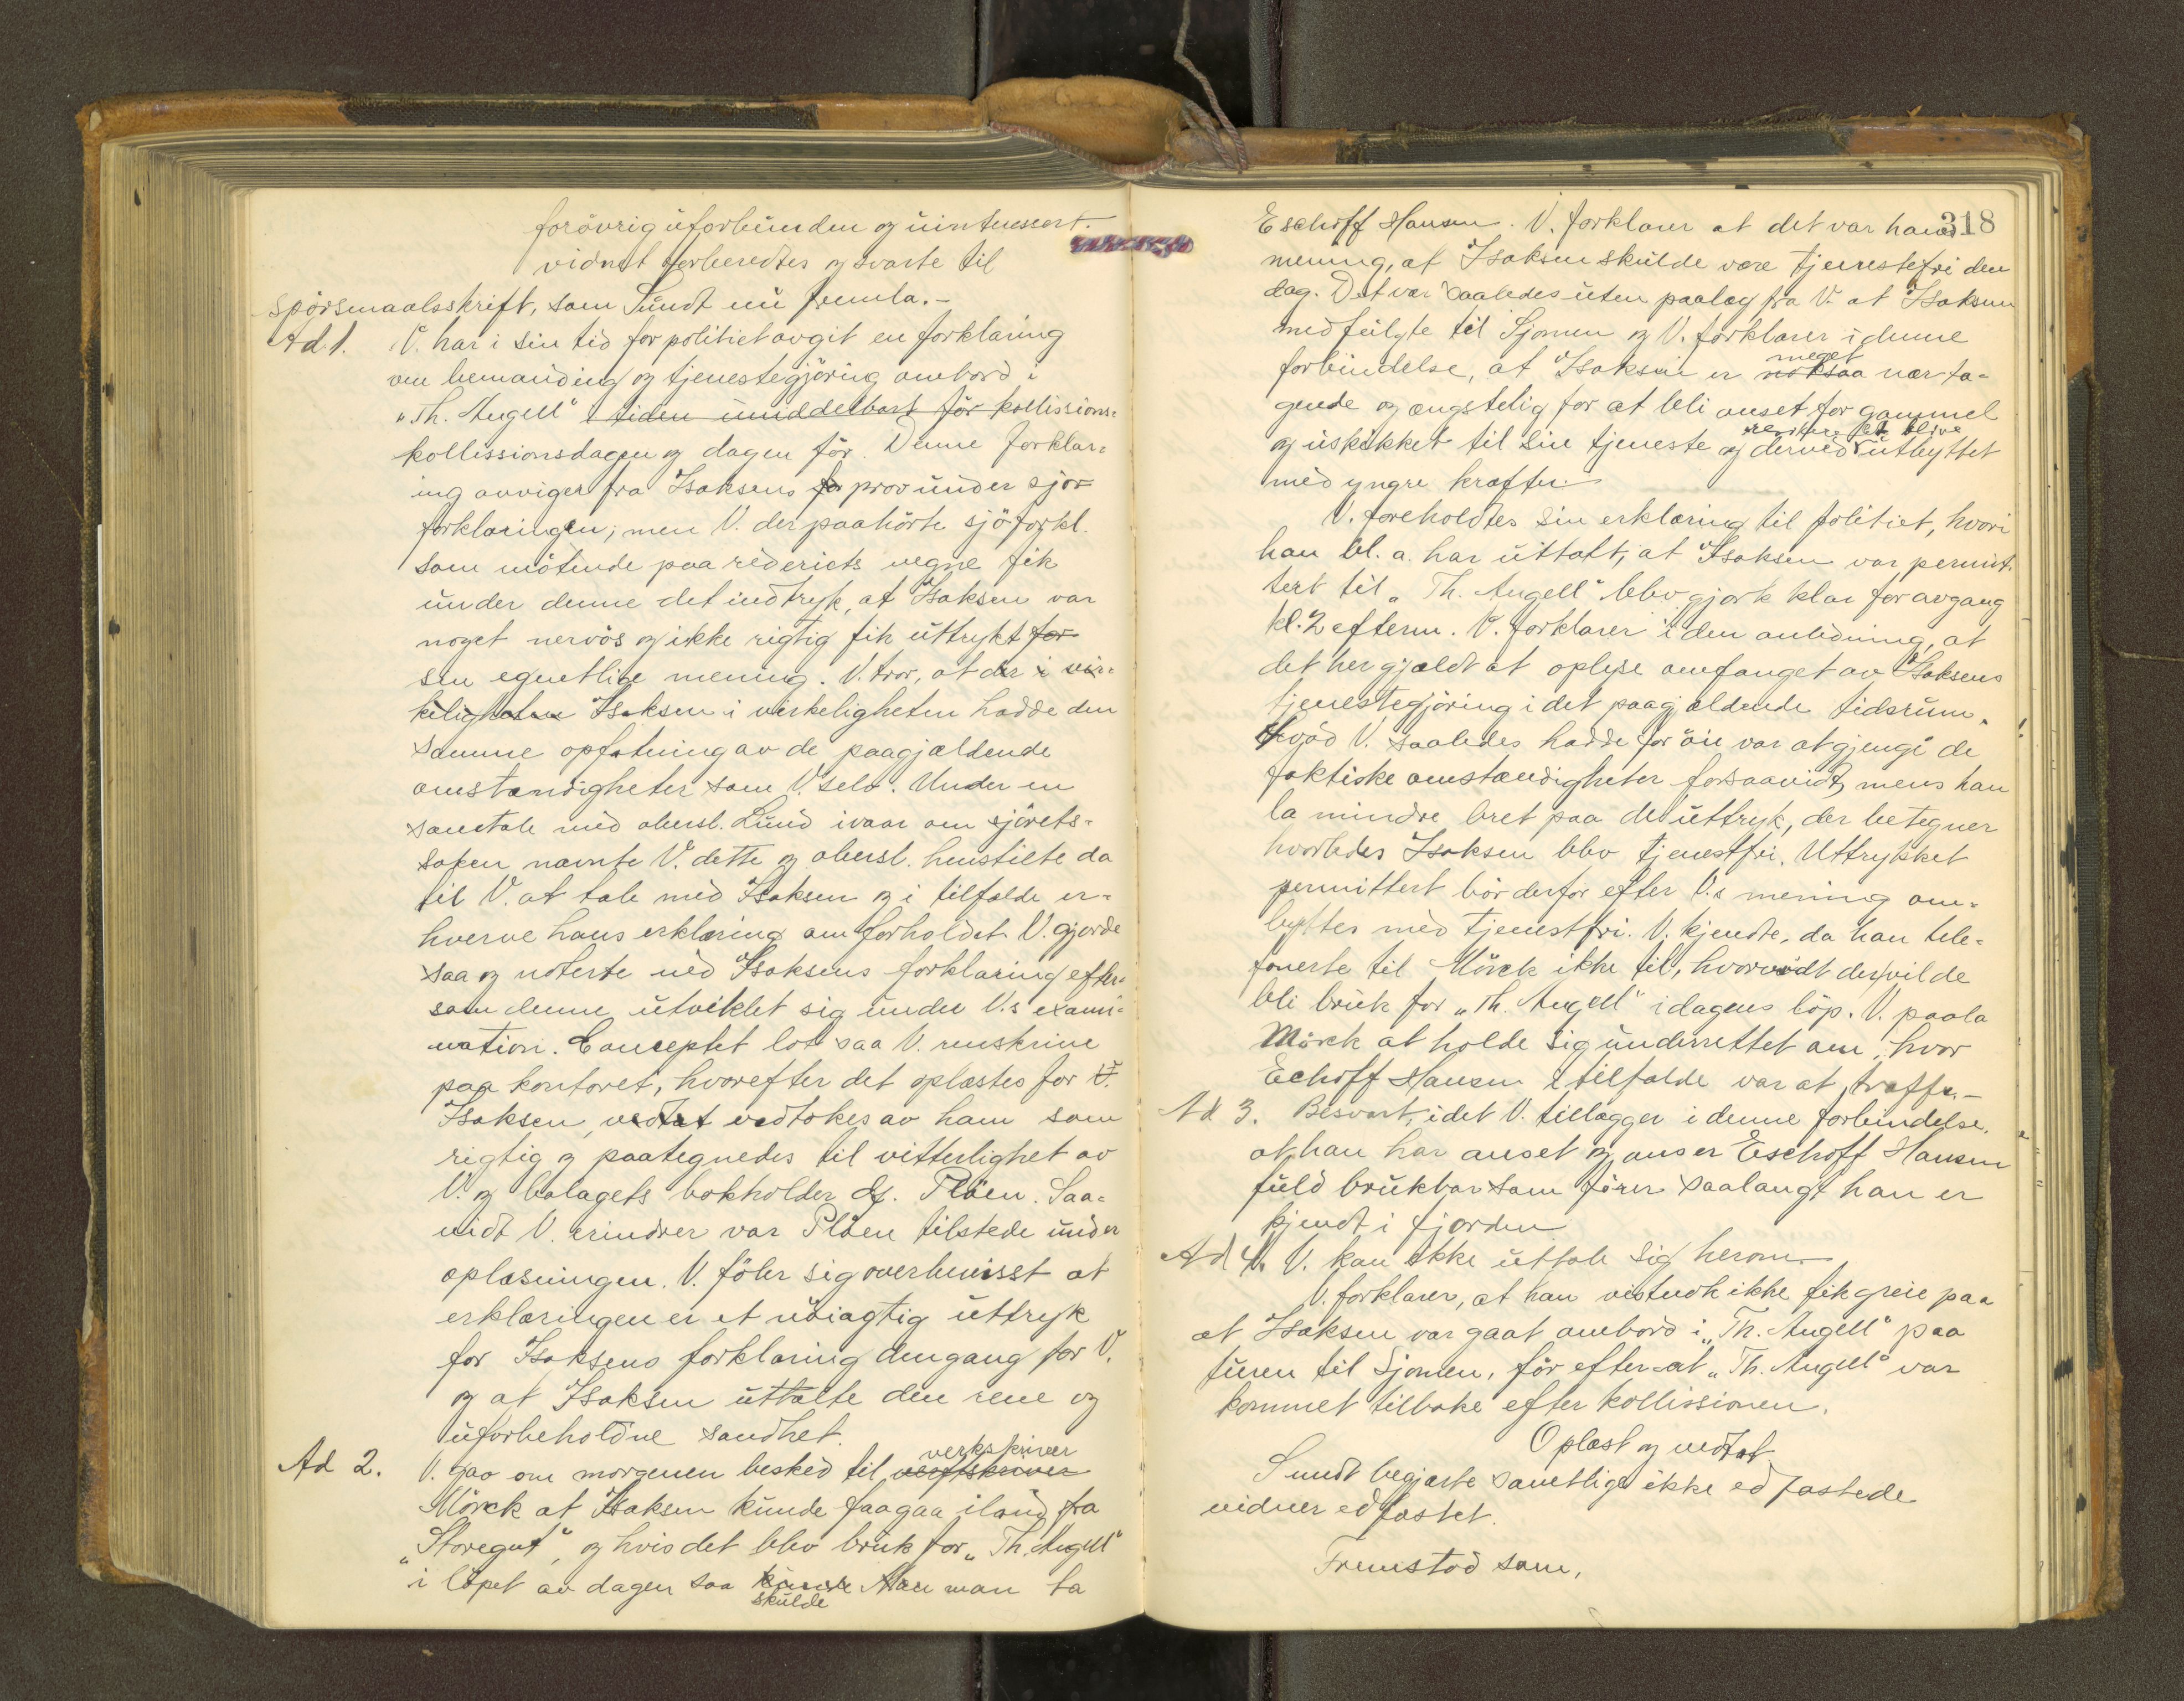 forövrig uforbunden og uinteressert.
vidnet forberedtes og svarte til
spörsmaalsskrift, som Sundt nu fremla.-
Ad 1. V. har i sin tid for politiet avgit en forklaring
om bemanding og tjenestegjöring ombord i
"Th. Angell" i tiden umiddelbart för kollissions=
kollissionsdagen og dagen för. Denne forklar=
ing avviger fra Isaksens for prov under sjör
forklaringen; men V. der paahörte sjöforkl.
som mötende paa rederiets vegne fik
under denne det indtryk, at Isaksen var
noget nervös og ikke rigtig fik uttrykt for
sin egentlige mening. V. tror, at der i vir=
keligheten Isaksen i virkeligheten hadde den
samme opfatning av de paagjældende
omstændigheter som V. selv. Under en
samtale med obersl. Lund ivaar om sjörets=
saken nævnte V. dette og obersl. henstilte da
til V. at tale med Isaksen og i tilfælde er=
hverve hans erklæring om forholdet. V. gjorde
saa og noterte ned Isaksens forklaring efter=
som denne utviklet sig under V.s exami=
nation. Conceptet lot saa V. renskrive
paa kontoret, hvorefter det oplæstes for V.
Isaksen, vedtat vedtokes av ham som
rigtig og paategnedes til vitterlighet av
V. og bolagets bokholder Hr. Plöen. Saa=
vidt V. erindrer var Plöen tilstede under
oplæsningen. V. föler sig overbevisst at
erklæringen er et nöiagtig uttryk
for Isaksens forklaring dengang for V.
og at Isaksen uttalte den rene og
uforbeholdne sandhet.
Ad 2. V. gav om morgenen besked til verftskriver verkskriver
Mörck at Isaksen kunde faa gaa iland fra
"Storegut", og hvis det blev bruk for "Th. Angell"
i löpet av dagen saa kunde skulde man ta
318
Eschoff Hansen. V. forklarer at det var hans
mening, at Isaksen skulde være tjenestefri den
dag. Det var saaledes uten paalæg fra V. at Isaksen
medfulgte til Sjomen og V. forklarer i denne
forbindelse, at Isaksen er noksaa meget nær ta=
gende og ængstelig for at bli anset for gammel
og uskikket til sin tjeneste og derved utbyttet
med yngre kræfter.
V. foreholdtes sin erklæring til politiet, hvori
han bl. a. har uttalt, at Isaksen var permit.
tert til "Th. Angell" blev gjort klar for avgang
kl. 2 efterm. V. forklarer i den anledning, at
det her gjaldt at oplyse omfanget av Isaksens
tjenestegjöring i det paagjældende tidsrum.
Hvad V. saaledes hadde for öie var at gjengi de
faktiske omstændigheter forsaavidt, mens han
la mindre bret paa det uttryk, der betegner
hvorledes Isaksen blev tjenestfri. Uttrykket
permittert bör derfor efter V.s mening om=
byttes med tjenestfri. V. kjendte, da han tele=
fonerte til Mörck ikke til, hvorvidt der vilde
bli bruk for "Th. Angell" i dagens löp. V. paala
Mörck at holde sig underrettet om, hvor
Echoff Hansen i tilfælde var at træffe.-
Ad 3. Besvart, idet V. tillægger i denne forbindelse,
at han har anset og anser Eschoff Hansen
fuld brukbar som förer saalangt han er
kjendt i fjorden
Ad 4. V. kan ikke uttale sig herom.
V. forklarer, at han vistnok ikke fik greie paa
at Isaksen var gaat ombord i "Th. Angell" paa
turen til Sjomen, för efter at "Th. Angell" var
kommet tilbake efter kollissionen.
Oplæst og vedtat
Sundt begjærte samtlige ikke ed fæstede
vidner edfæstet.
Fremstod som,